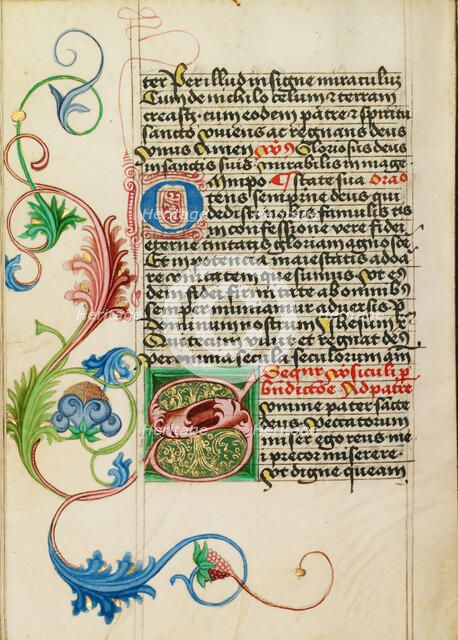 ter Per illud insigne miraculuz
Cum de nichilo celum et terram
creastz cum eodem patre et spiritu
sancto viuens ac regnans deus
Vnus Amen Gloriosus deus
in sanctis suis mirabilis in mage
Oratio
Omnipo
tens sempiterne deus qui
dedisti nobis famulis tis
in confessione vere fidei
eterne trinitatis gloriam agnosce
Et in potencia maiestatis adora
re vnitatem quesumus Vt ei9
dem fidei firmitate ab omnibus
Semper muniamur aduersis P
Dominum nostrum Jhesum
Qui tecum viuit et regnat de9
Per omnia secula seculorum am
Ad patre
omine pater sancte
deus Peccatorum
miser ego reus me
i precor miserere
Vt digne queam
Heritage
Images